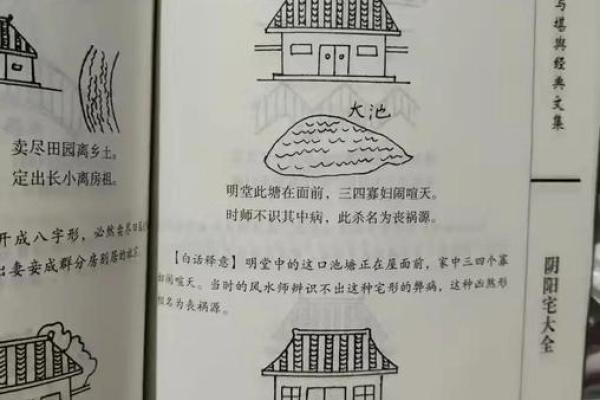 卖尽田园离乡土。
定出长小离房祖。
开成八字形,必然卖尽田
妻妾成群分房别居的故
大池
明堂此塘在面前,三四寡妇闹喧天。
时师不识其中病,此杀名为丧祸源。
【白话释意】明堂中的这口池塘正在屋面前,家中三四个寡
妇闹喧天。当时的风水师辩识不出这种宅形的弊病,这种凶煞形
名为丧祸源。
与堪舆经典文集
阴阳宅大全